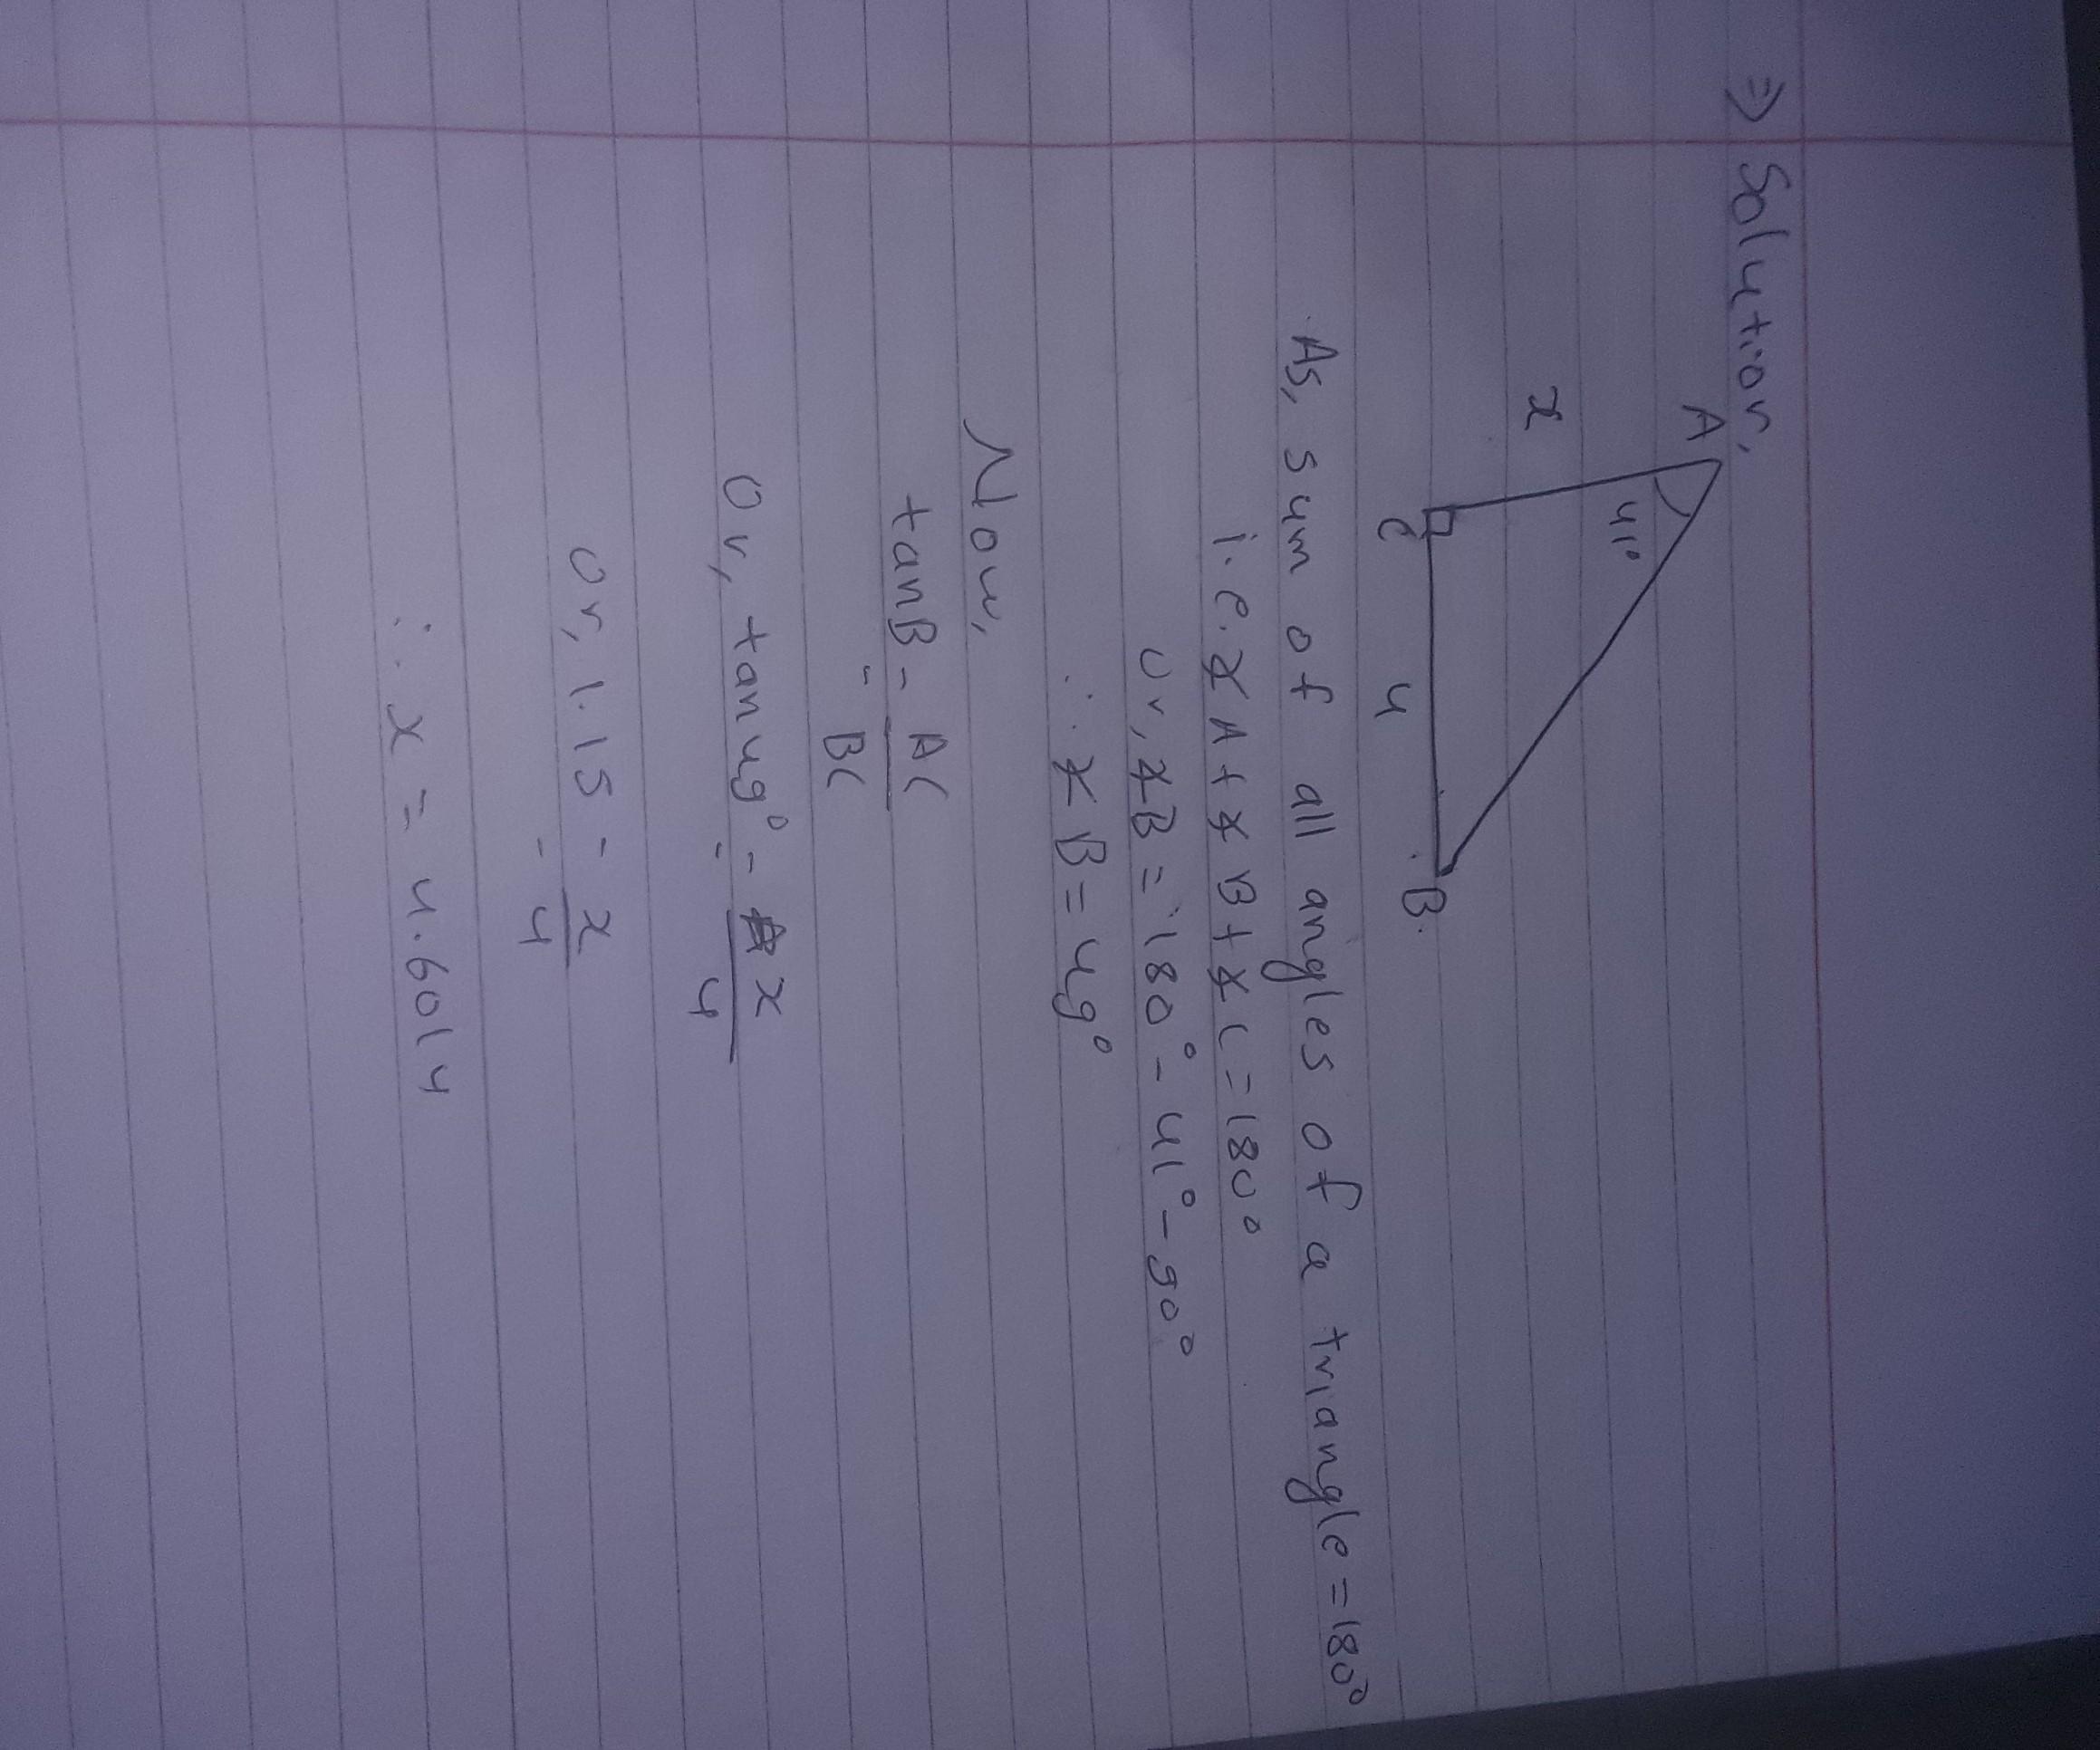 ⇒ Solution,
A
41°
x
C
4
B
As, sum of all angles of a triangle = 180°
i.e. ∡A + ∡B + ∡C = 180°
or, ∡B = 180° - 41° - 90°
∴ ∡B = 49°
Now,
tanB = AC
BC
or, tan49° = x
4
or, 1.15 = x
4
∴ x = 4.6014